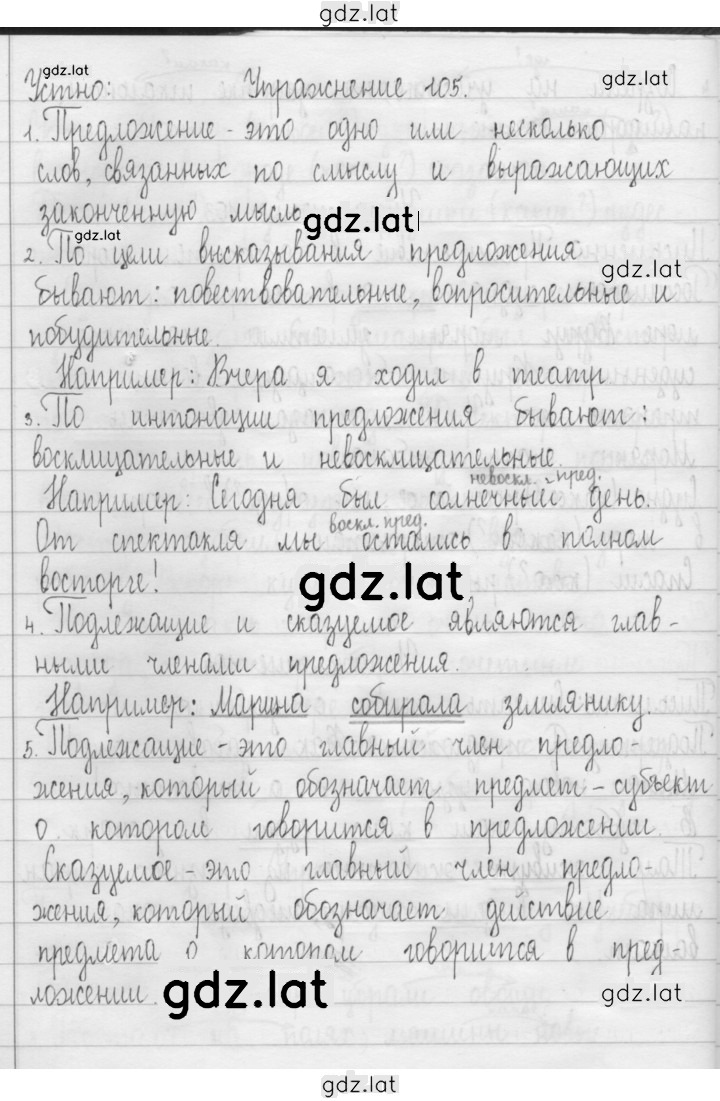 gdz.lat
gdz.lat
Устно: Упражнение 105. gdz.lat
1. Предложение - это одно или несколько
слов, связанных по смыслу и выражающих
законченную мысль gdz.lat
gdz.lat
2. По цели высказывания предложения
gdz.lat
бывают: повествовательные, вопросительные и
побудительные.
Например: Вчера я ходил в театр
3. По интонации предложения бывают:
восклицательные и невосклицательные.
невоскл. пред.
Например: Сегодня был солнечный день.
воскл. пред.
От спектакля мы остались в полном
восторге! gdz.lat
4. Подлежащие и сказуемое являются глав-
ными членами предложения.
Например: Марина собирала землянику.
5. Подлежащие - это главный член предло-
жения, который обозначает предмет - субъект
о котором говорится в предложении.
Сказуемое - это главный член предло-
жения, который обозначает действие
предмета о котором говорится в пред-
ложении gdz.lat gdz.lat
gdz.lat